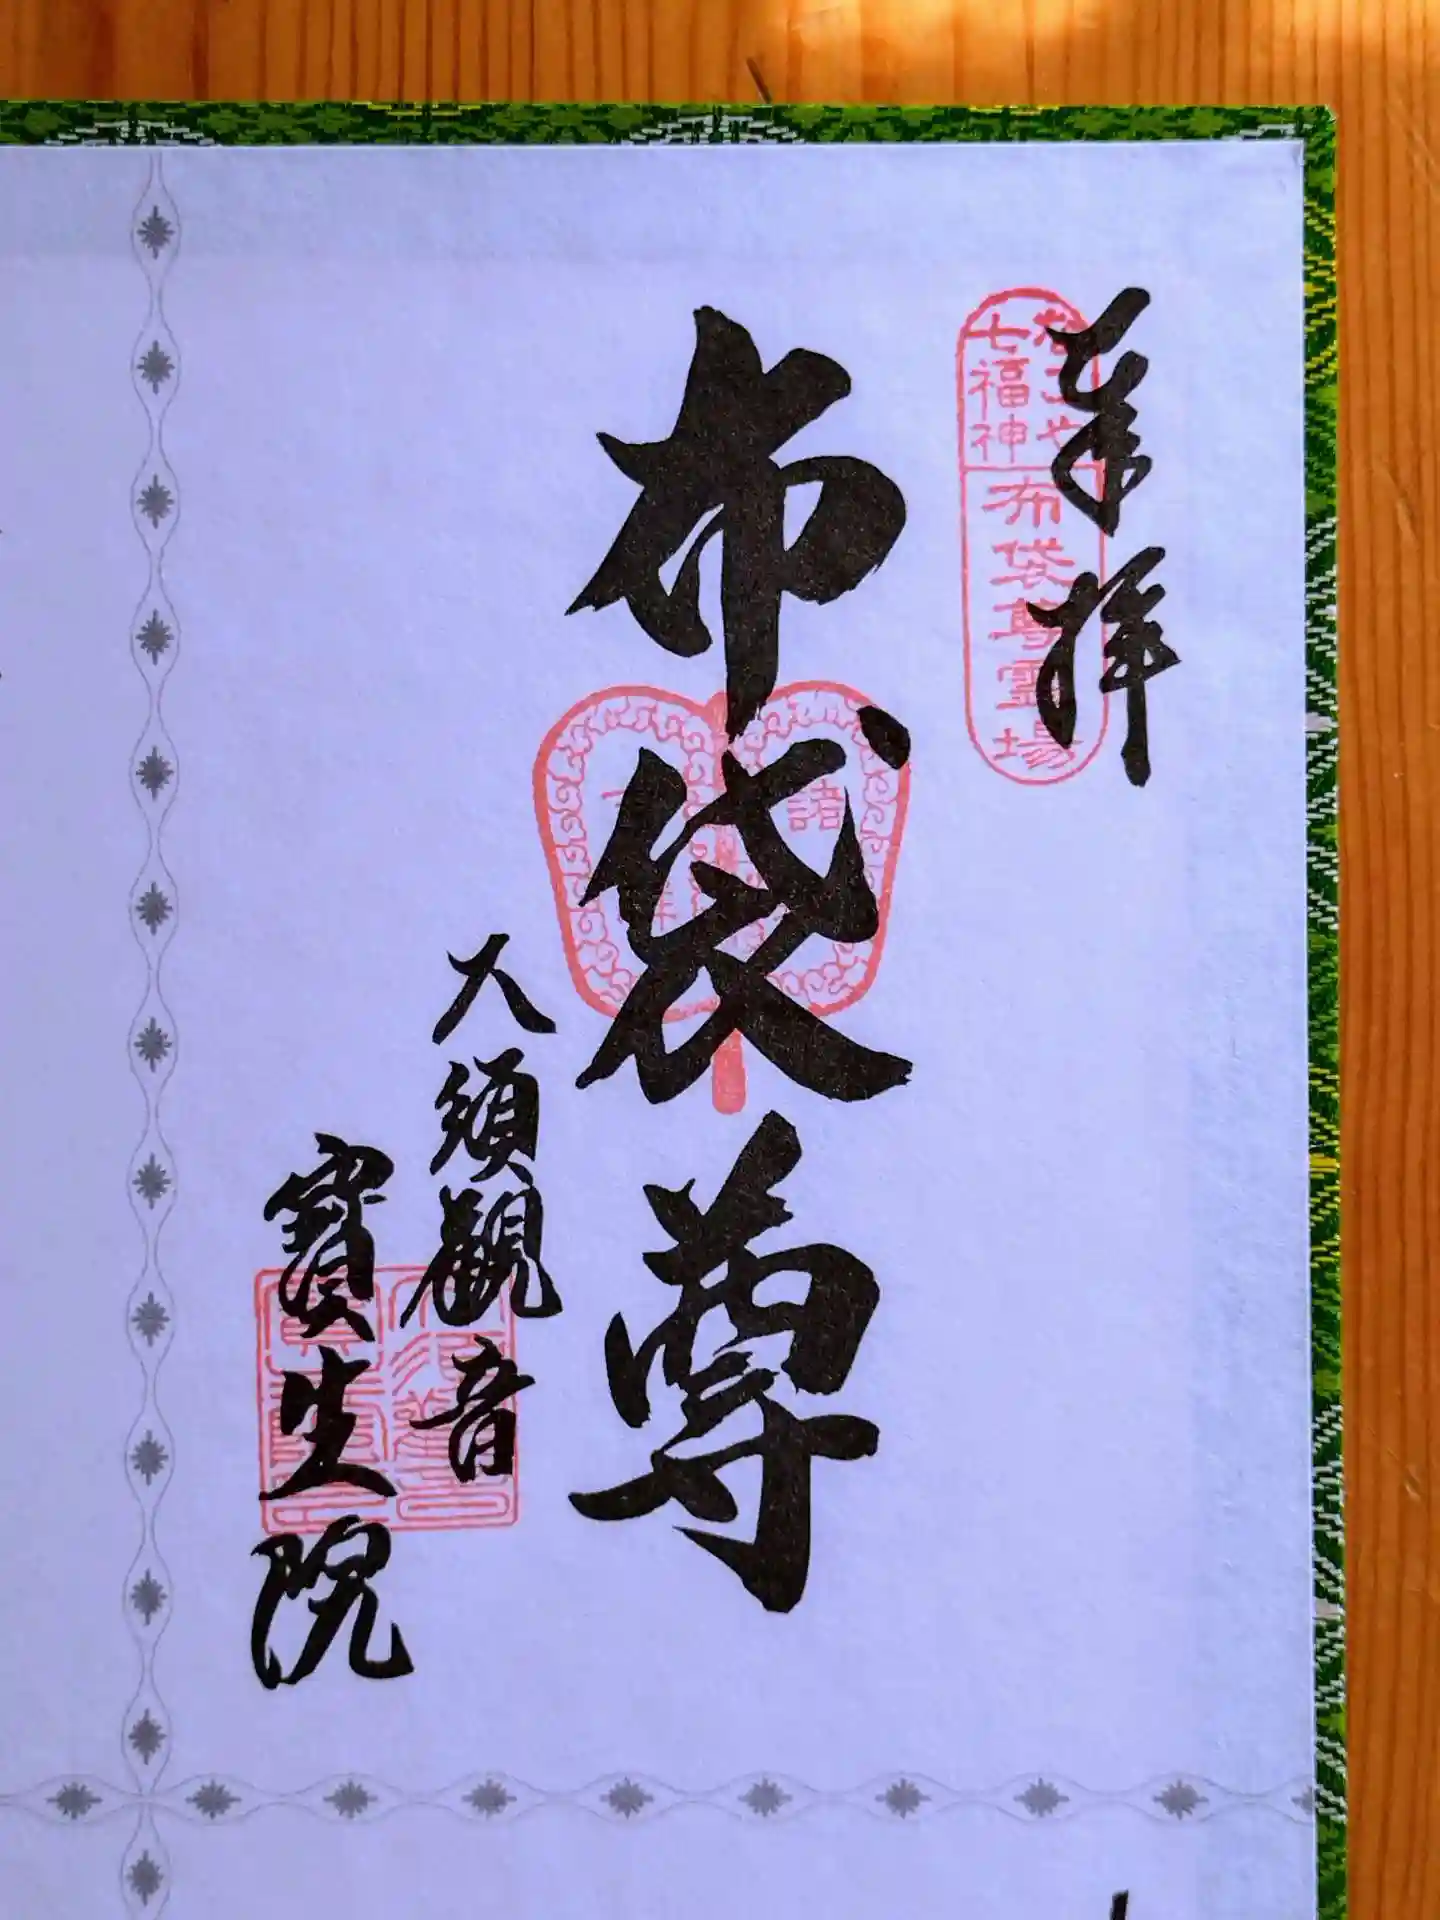 奉拝
なごや
七福神
布袋尊霊場
布袋尊
大須観音
寶生院